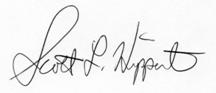 Scott L. Hippert